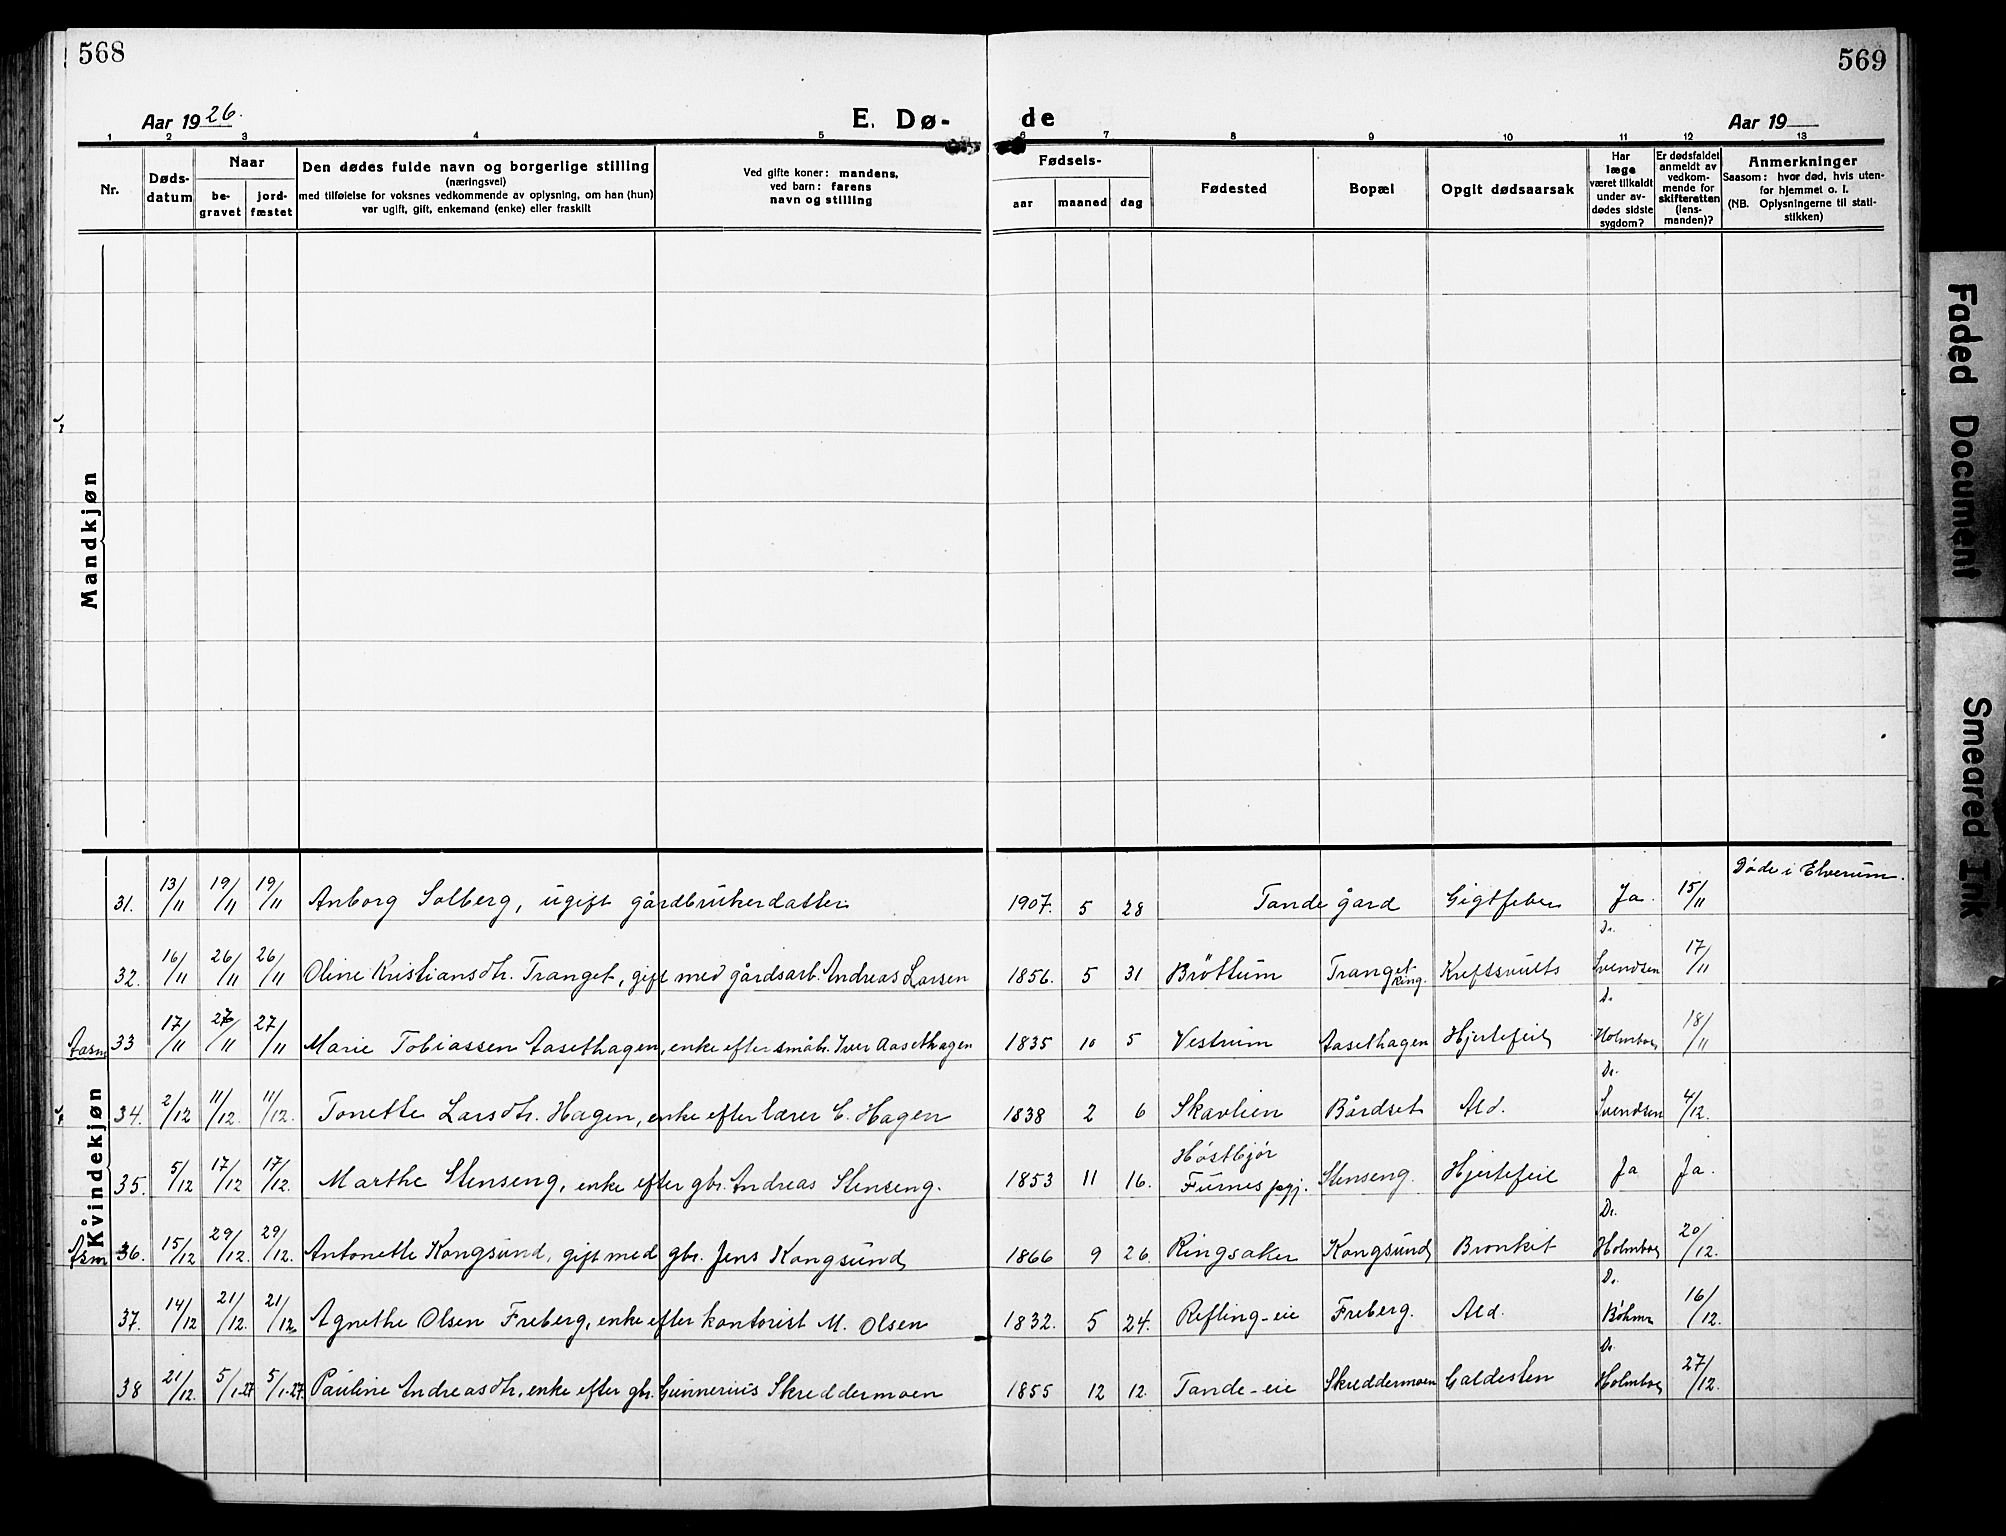 568
569
Aar 1926.
E. Dø-
de
Aar 19
1 2 3 4 5 6 7 8 9 10 11 12 13
Nr.
Døds-
datum
Naar
be-
gravet
jord-
fæstet
Den dødes fulde navn og borgerlige stilling
(næringsvei)
med tilføielse for voksnes vedkommende av oplysning, om han (hun)
var ugift, gift, enkemand (enke) eller fraskilt
Ved gifte koner: mandens,
ved barn: farens
navn og stilling
Fødsels-
aar
maaned
dag
Fødested
Bopæl
Opgit dødsaarsak
Har
læge
været tilkaldt
under av-
dødes sidste
sygdom?
Er dødsfaldet
anmeldt av
vedkom-
mende for
skifteretten
(lens-
manden)?
Anmerkninger
Saasom: hvor død, hvis uten-
for hjemmet o. l.
(NB. Oplysningerne til stati-
stikken)
Mandkjøn
Kvindekjøn
31. 13/11 19/11 19/11 Anborg Solberg, ugift gårdbrukerdatter 1907. 5 28 Tande gård Gigtfeber Ja. 15/11 Døde i Elverum.
32. 16/11 26/11 26/11 Oline Kristiansdtr. Tranget, gift med gårdsarb. Andreas Larsen 1856. 5 31 Brøttum Tranget Ring. Kreftsvulst Dr. Svendsen 17/11
Aasm 33 17/11 27/11 27/11 Marie Tobiassen Aasethagen, enke efter småbr. Iver Aasethagen 1835 10 5 Vestrum Aasethagen Hjertefeil Dr. Holmboe 18/11
34. 2/12 11/12. 11/12. Tonette Larsdtr. Hagen, enke efter lærer C. Hagen 1838 2 6 Skavlien Bårdset Ald. Dr. Svendsen 4/12.
35. 5/12 17/12 17/12. Marthe Stenseng, enke efter gbr. Andreas Stenseng. 1853 11 16. Høstbjør Furnes pgj. Stenseng. Hjertefeil Ja Ja.
Asm 36. 15/12 29/12. 29/12. Antonette Kongsund, gift med gbr. Jens Kongsund 1866 9 26. Ringsaker Kongsund Bronkit Dr. Holmboe 20/12.
37. 14/12 21/12. 21/12. Agnethe Olsen Freberg, enke efter kontorist M. Olsen 1832. 5 24. Refling-eie Freberg. Ald. Dr. Bøhmer 16/12.
38 21/12. 5/1-27 5/1-27. Pauline Andreasdtr, enke efter gbr. Gunnerius Skreddermoen 1855 12 12. Tande-eie Skreddermoen Galdesten Dr. Holmboe 27/12.
Faded Document
Smeared Ink